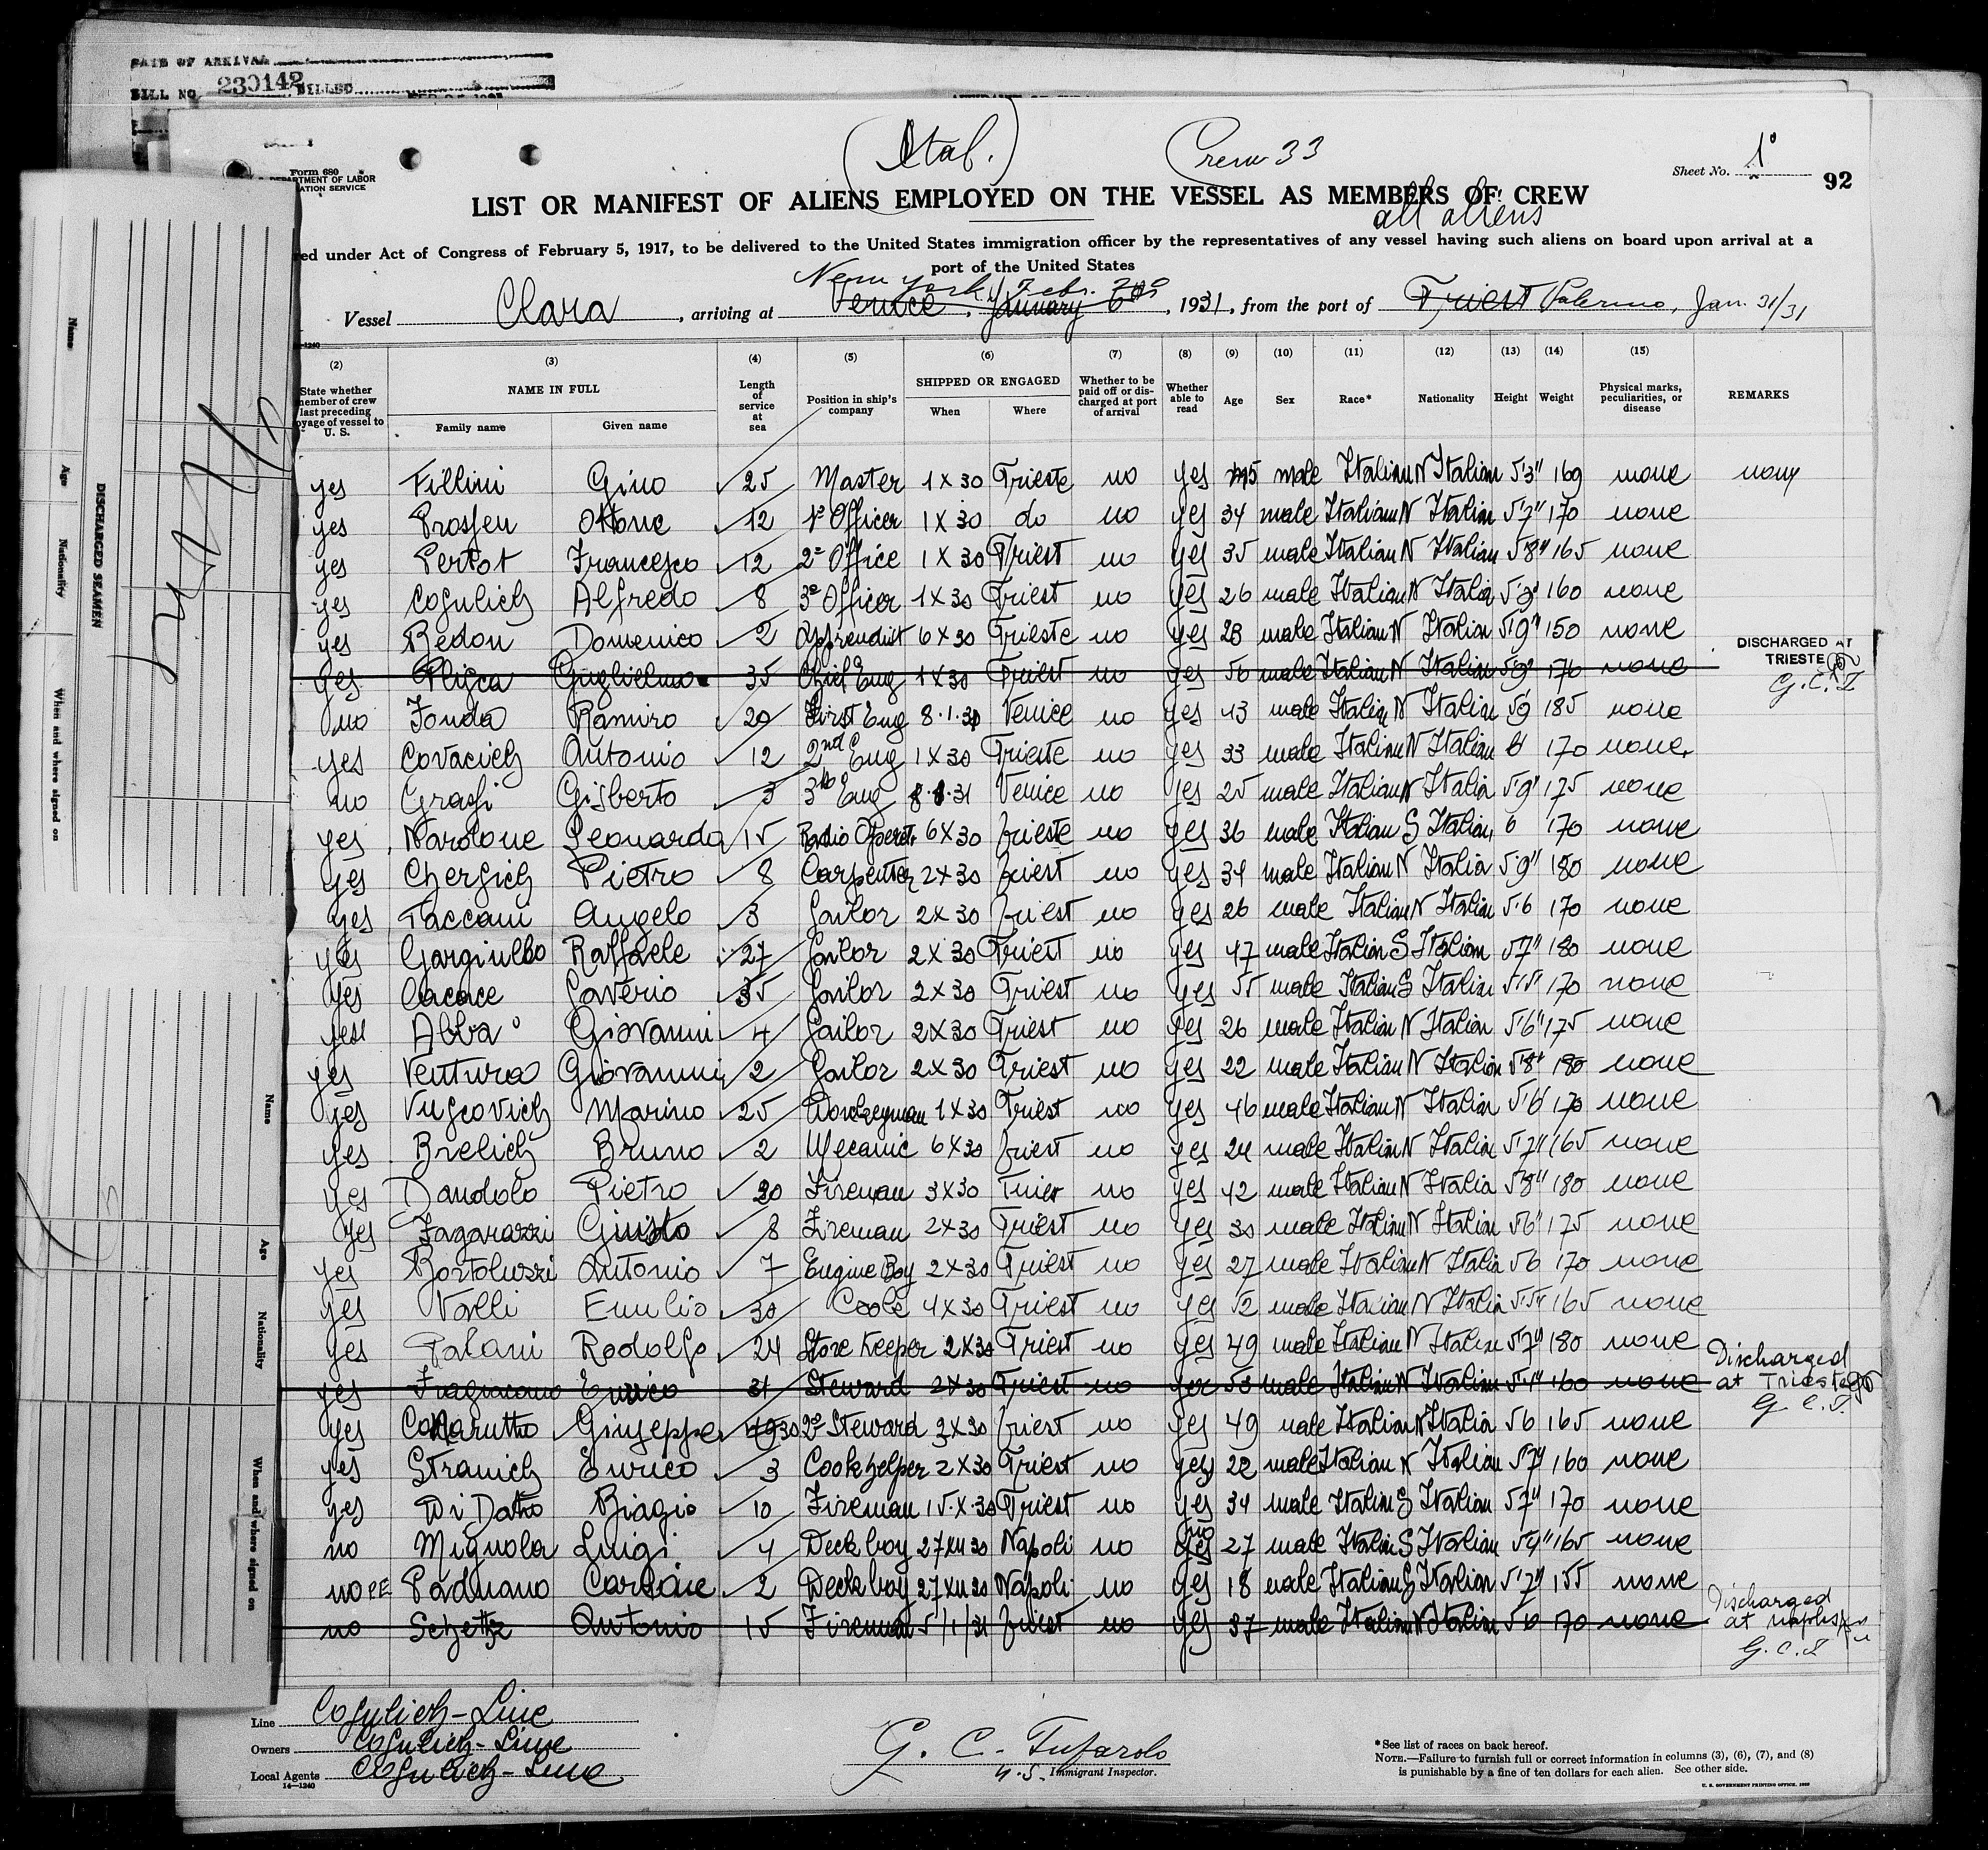 DATE OF ARRIVAL
BILL NO. 230142 BILLED
(Ital.) Crew 33
Sheet No. 1° 92
Form 680
DEPARTMENT OF LABOR
LIST OR MANIFEST OF ALIENS EMPLOYED ON THE VESSEL AS MEMBERS OF CREW
all aliens
red under Act of Congress of February 5, 1917, to be delivered to the United States immigration officer by the representatives of any vessel having such aliens on board upon arrival at a
port of the United States
New York, Febr.
Vessel Clara, arriving at Venice, January 6th, 1931, from the port of Triest Palermo, Jan. 31/31
(2) (3) (4) (5) (6) (7) (8) (9) (10) (11) (12) (13) (14) (15)
State whether member of crew last preceding voyage of vessel to U. S.
NAME IN FULL
Family name Given name
Length of service at sea
Position in ship's company
SHIPPED OR ENGAGED
When Where
Whether to be paid off or discharged at port of arrival
Whether able to read
Age Sex Race* Nationality Height Weight
Physical marks, peculiarities, or disease
REMARKS
yes Fillini Gino 25 Master 1 X 30 Trieste no yes male Italian N Italian 5'3" 169 none none
yes Prosfen Ottone 12 1° Officer 1 X 30 do no yes 34 male Italian N Italian 5'7" 170 none
yes Pertot Francesco 12 2° Office 1 X 30 Triest no yes 35 male Italian N Italian 5'8" 165 none
yes Cosulich Alfredo 8 3° Officer 1 X 30 Triest no yes 26 male Italian N Italia 5'9" 160 none
yes Bedon Domenico 2 6 X 30 Trieste no yes 28 male Italian N Italian 5'9" 150 none
yes Guglielmo 35 Chief Eng 1 X 30 Triest no yes 56 male Italian N Italian 5'9" 170 none DISCHARGED AT TRIESTE G.C.T
no Fonda Ramiro 20 First Eng 8.1.31 Venice no yes 43 male Italian N Italian 5'9 185 none
yes Covacich Antonio 12 2nd Eng 1 X 30 Trieste no yes 33 male Italian N Italian 6 170 none.
no Grassi Gisberto 3 Eng 8.1.31 Venice no yes 25 male Italian N Italia 5'9" 175 none
yes Nardone Leonardo 15 Radio Operat. 6 X 30 Trieste no yes 36 male Italian S Italian 6 170 none
yes Chersich Pietro 8 Carpenter 2 X 30 Triest no yes 34 male Italian N Italia 5'9" 180 none
yes Taccani Angelo 3 Sailor 2 X 30 Triest no yes 26 male Italian N Italian 5'6 170 none
yes Gargiullo Raffaele 27 Sailor 2 X 30 Triest no yes 47 male Italian S Italian 5'7" 180 none
yes Cacace Saverio 35 Sailor 2 X 30 Triest no yes 55 male Italian S Italian 5'5" 170 none
yes Abba Giovanni 4 Sailor 2 X 30 Triest no yes 26 male Italian N Italian 5'6" 175 none
yes Ventura Giovanni 2 Sailor 2 X 30 Triest no yes 22 male Italian N Italian 5'8" 180 none
yes Vuscovich Marino 25 Donkeyman 1 X 30 Triest no yes 46 male Italian N Italian 5'6" 170 none
yes Brelich Bruno 2 Mecanic 6 X 30 Triest no yes 24 male Italian N Italia 5'7" 165 none
yes Dandolo Pietro 20 Fireman 3 X 30 Triest no yes 42 male Italian N Italia 5'8" 180 none
yes Fagarazzi Giusto 8 Fireman 2 X 30 Triest no yes 30 male Italian N Italian 5'6" 175 none
yes Bortoluzzi Antonio 7 Engine Boy 2 X 30 Triest no yes 27 male Italian N Italia 5'6 170 none
yes Valli Emilio 30 Cook 4 X 30 Triest no yes 52 male Italian N Italia 5'5" 165 none
yes Patani Rodolfo 24 Store Keeper 2 X 30 Triest no yes 49 male Italian N Italian 5'7" 180 none
yes Fragiacomo Enrico 31 Steward 2 X 30 Triest no yes 53 male Italian N Italian 5'4" 160 none Discharged at Trieste G. C. T.
yes Giuseppe 30 2° Steward 3 X 30 Triest no yes 49 male Italian N Italia 5'6 165 none
yes Stranich Enrico 3 Cook helper 2 X 30 Triest no yes 22 male Italian N Italian 5'7" 160 none
yes Di Dato Biagio 10 Fireman 15.X.30 Triest no yes 34 male Italian S Italian 5'7" 170 none
no Mignola Luigi 4 Deck boy 27 XII 30 Napoli no no 27 male Italian S Italian 5'4" 165 none
no Padnano 2 Deck boy 27 XII 30 Napoli no yes 18 male Italian S Italian 5'7" 155 none
no Antonio 15 Fireman 5/1/31 Triest no yes 37 male Italian N Italian 5'6 170 none Discharged at Naples G. C. T
Line Cosulich-Line
Owners Cosulich-Line
Local Agents Cosulich-Line
14—1240
G. C. Tufarolo
U.S. Immigrant Inspector.
*See list of races on back hereof.
NOTE.—Failure to furnish full or correct information in columns (3), (6), (7), and (8)
is punishable by a fine of ten dollars for each alien. See other side.
U. S. GOVERNMENT PRINTING OFFICE
DISCHARGED SEAMEN
Name Age Nationality When and where signed on
Name Age Nationality When and where signed on